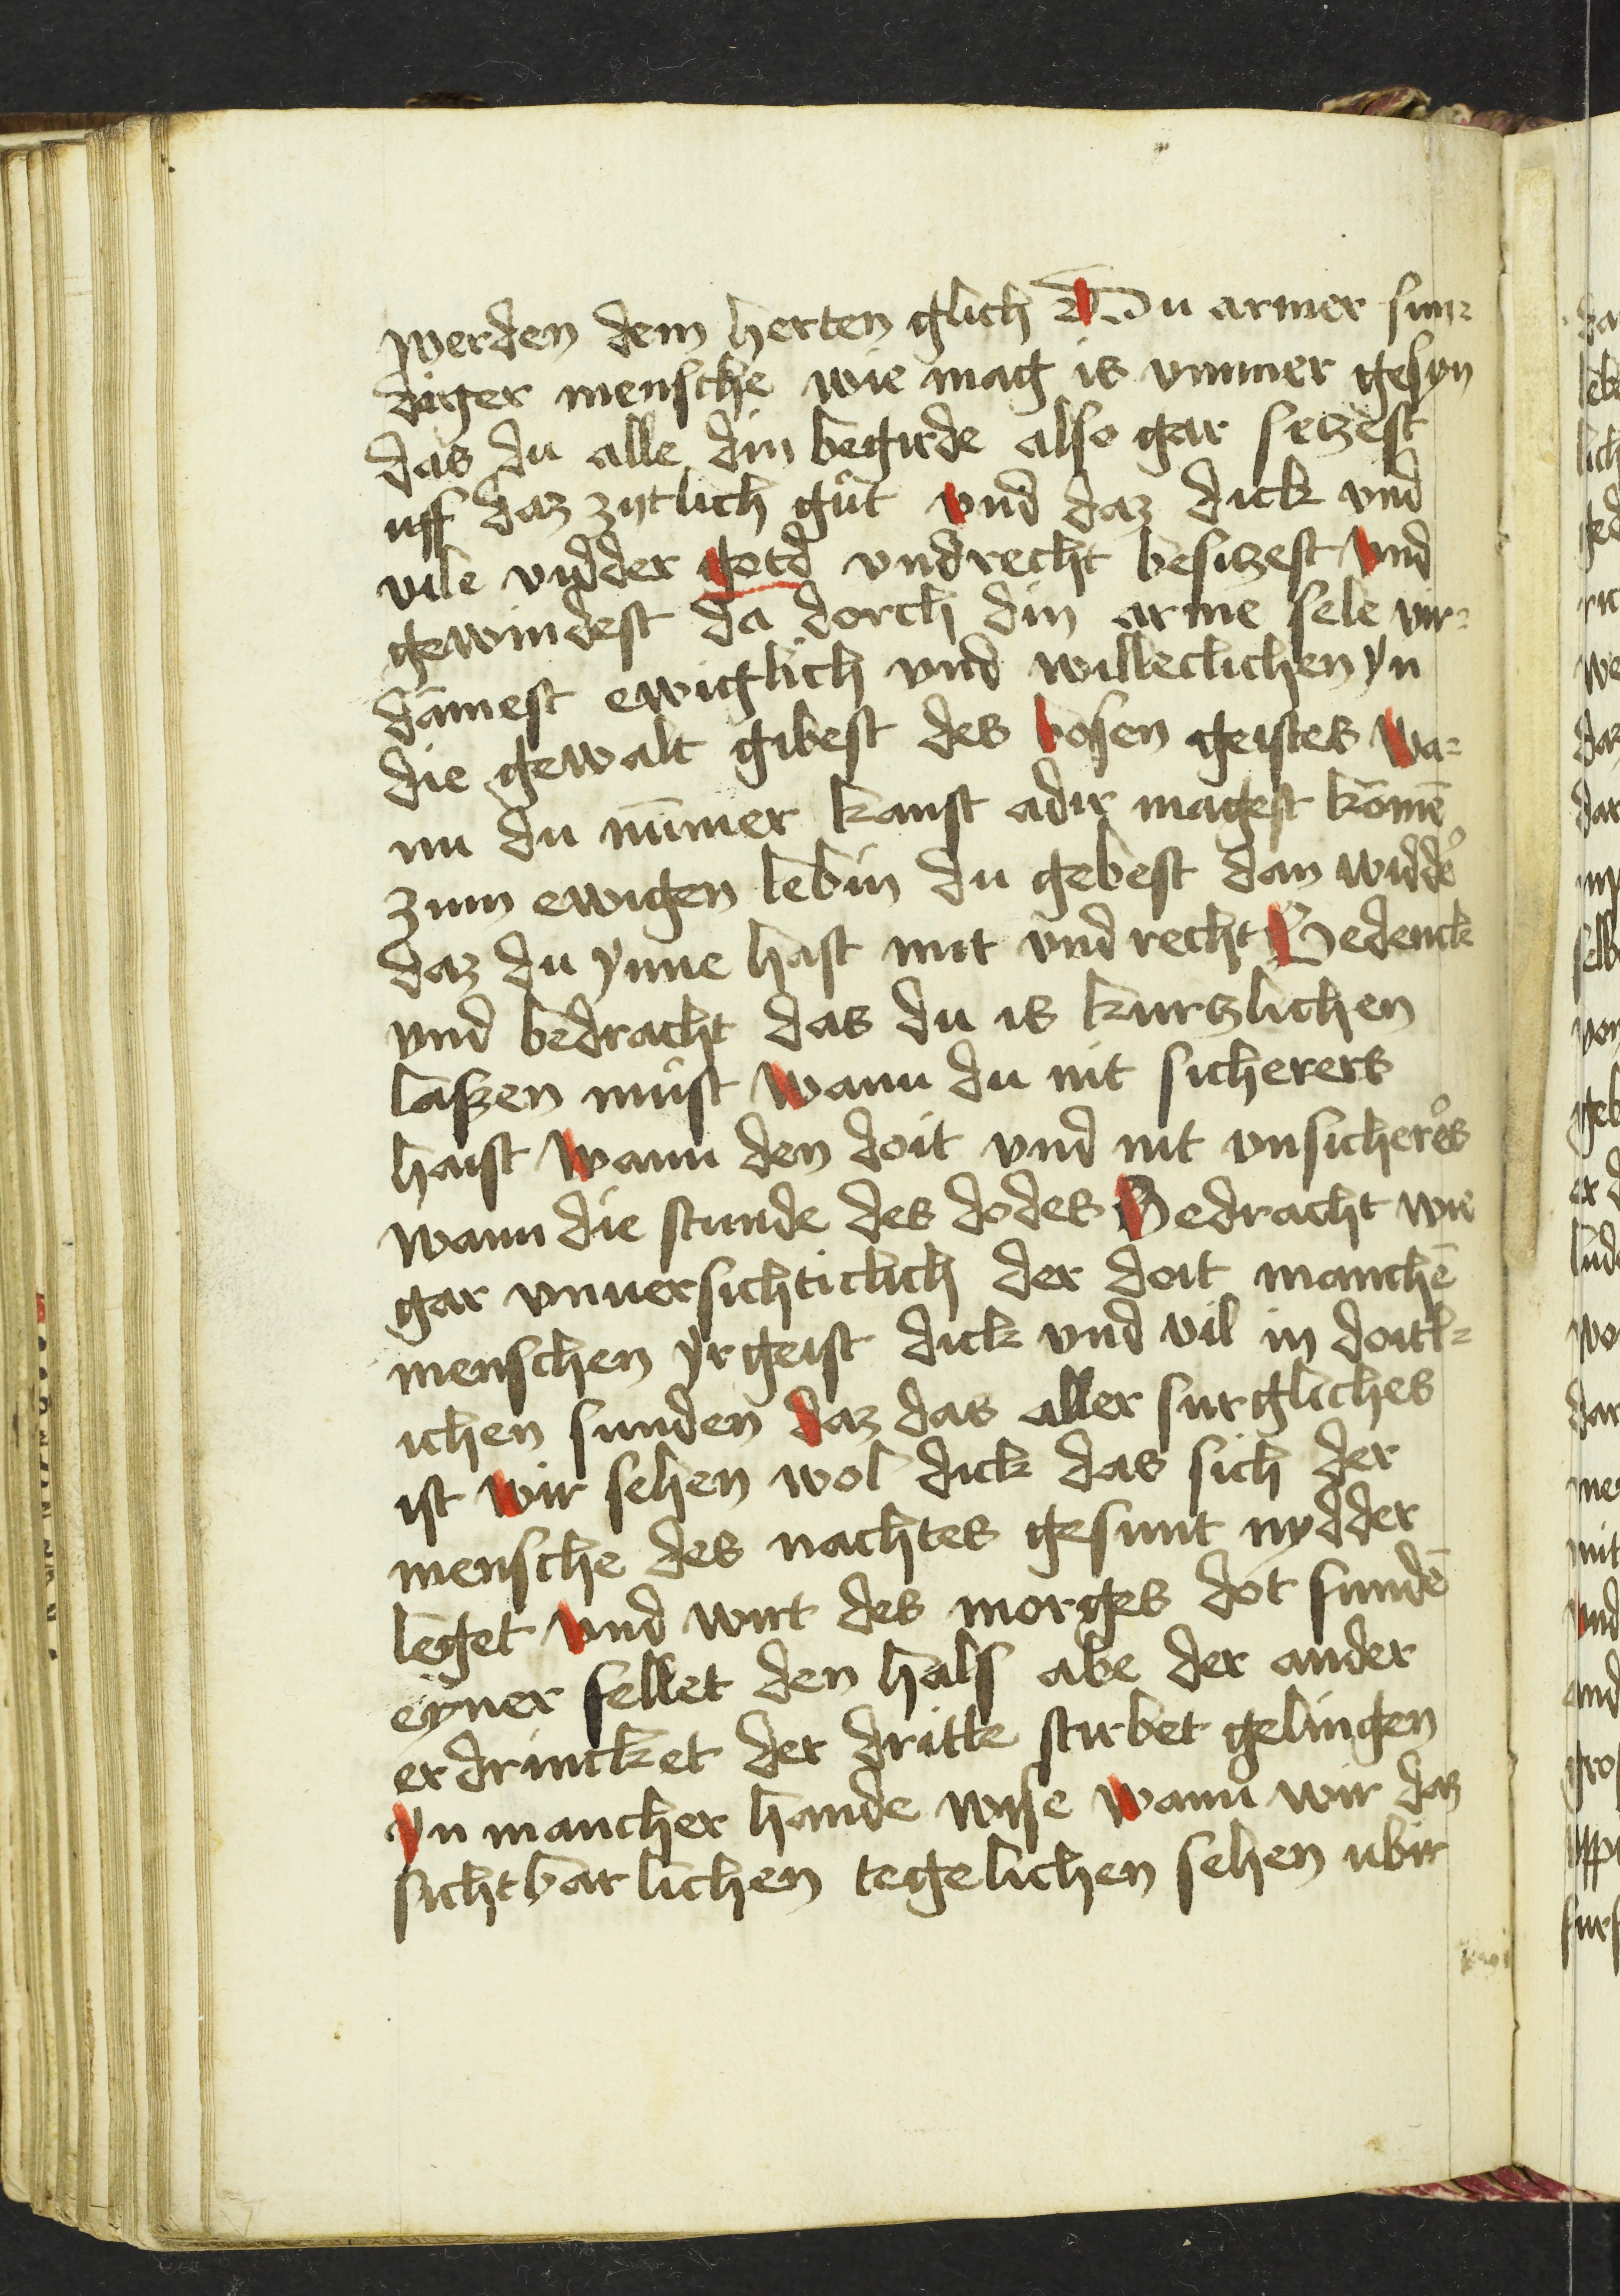 werden dem herten glich Du armer sun=
diger mensche wie mag is vmmer gesyn
das du alle din begirde also gar setzest
uff daz zytlich gut vnd daz dick vnd
vile vidder gotd vndrecht besitzest vnd
gewindest da dorch din arme sele vir=
dāmest ewiglich vnd willeclichen yn
die gewalt gibest des bosen geistes wa=
nn du nūmer kanst adir magest kōmē
zum ewigen lebin du gebest dan widder
daz du ynne hast mit vnd recht Bedenck
vnd bedracht das du is kurtzlichen
laszen must wann du nit sicherers
haist wann den doit vnd nit vnsicherers
wann die stunde des dodes Bedracht wie
gar vnuersichticlich der doit manchē
menschen yrgeist dick vnd vil in doitl=
ichen sunden daz das aller surgliches
ist wir sehen wol dick das sich der
mensche des nachtes gesunt nydder
leget vnd wirt des morges dot fundē
eyner fellet den hals abe der ander
erdrincket der dritte stirbet gelingen
yn mancher hande wyse wann wir daz
sichtbarlichen tegelichen sehen ubir